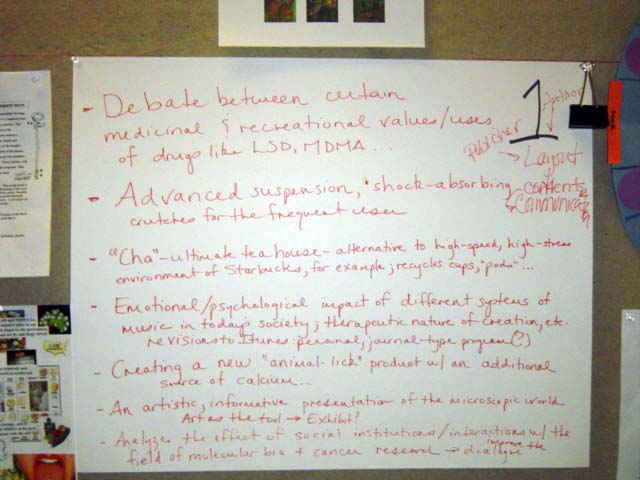 - Debate between certain
medicinal & recreational values/uses
of drugs like LSD, MDMA...
1
Author
Publisher
→ Layout
contents
Communicate
- Advanced suspension, shock-absorbing
crutches for the frequent user
- "Cha" - ultimate tea house - alternative to high-speed, high-stress
environment of Starbucks, for example; recycles cups, "pods"...
- Emotional/psychological impact of different systems of
music in today's society; therapeutic nature of creation, etc.
revisions to Itunes: personal, journal-type program(?)
- Creating a new "animal-lick" product w/ an additional
source of calcium...
- An artistic, informative presentation of the microscopic world
Art as the tool → Exhibit?
- Analyze the effect of social institutions/interactions w/ the
field of molecular bio + cancer research → improve the dialogue